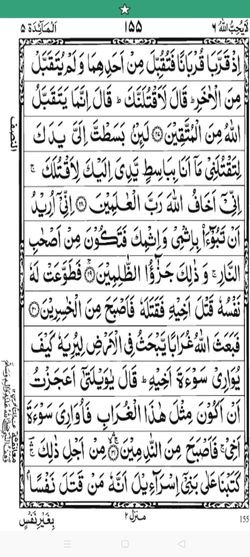 لَا يُحِبُّ اللّٰهُ ۶
۱۵۵
اَلْمَآئِدَة ۵
اِذْ قَرَّبَا قُرْبَانًا فَتُقُبِّلَ مِنْ اَحَدِهِمَا وَلَمْ يُتَقَبَّلْ
مِنَ الْاٰخَرِ ؕ قَالَ لَاَقْتُلَنَّكَ ؕ قَالَ اِنَّمَا يَتَقَبَّلُ
اللّٰهُ مِنَ الْمُتَّقِيْنَ ﴿۲۷﴾ لَئِنْۢ بَسَطْتَّ اِلَيَّ يَدَكَ
لِتَقْتُلَنِيْ مَاۤ اَنَا بِبَاسِطٍ يَّدِيَ اِلَيْكَ لِاَقْتُلَكَ ۚ
اِنِّيْۤ اَخَافُ اللّٰهَ رَبَّ الْعٰلَمِيْنَ ﴿۲۸﴾ اِنِّيْۤ اُرِيْدُ
اَنْ تَبُوْٓءَاۡ بِاِثْمِيْ وَاِثْمِكَ فَتَكُوْنَ مِنْ اَصْحٰبِ
النَّارِ ۚ وَذٰلِكَ جَزٰٓؤُا الظّٰلِمِيْنَ ﴿۲۹﴾ فَطَوَّعَتْ لَهٗ
نَفْسُهٗ قَتْلَ اَخِيْهِ فَقَتَلَهٗ فَاَصْبَحَ مِنَ الْخٰسِرِيْنَ ﴿۳۰﴾
فَبَعَثَ اللّٰهُ غُرَابًا يَّبْحَثُ فِي الْاَرْضِ لِيُرِيَهٗ كَيْفَ
يُوَارِيْ سَوْءَةَ اَخِيْهِ ؕ قَالَ يٰوَيْلَتٰۤى اَعَجَزْتُ
اَنْ اَكُوْنَ مِثْلَ هٰذَا الْغُرَابِ فَاُوَارِيَ سَوْءَةَ
اَخِيْ ۚ فَاَصْبَحَ مِنَ النّٰدِمِيْنَ ﴿۳۱﴾ مِنْ اَجْلِ ذٰلِكَ ۚ
كَتَبْنَا عَلٰى بَنِيْۤ اِسْرَآءِيْلَ اَنَّهٗ مَنْ قَتَلَ نَفْسًۢا
بِغَيْرِ نَفْسٍ
منزل ۲
155
النصف